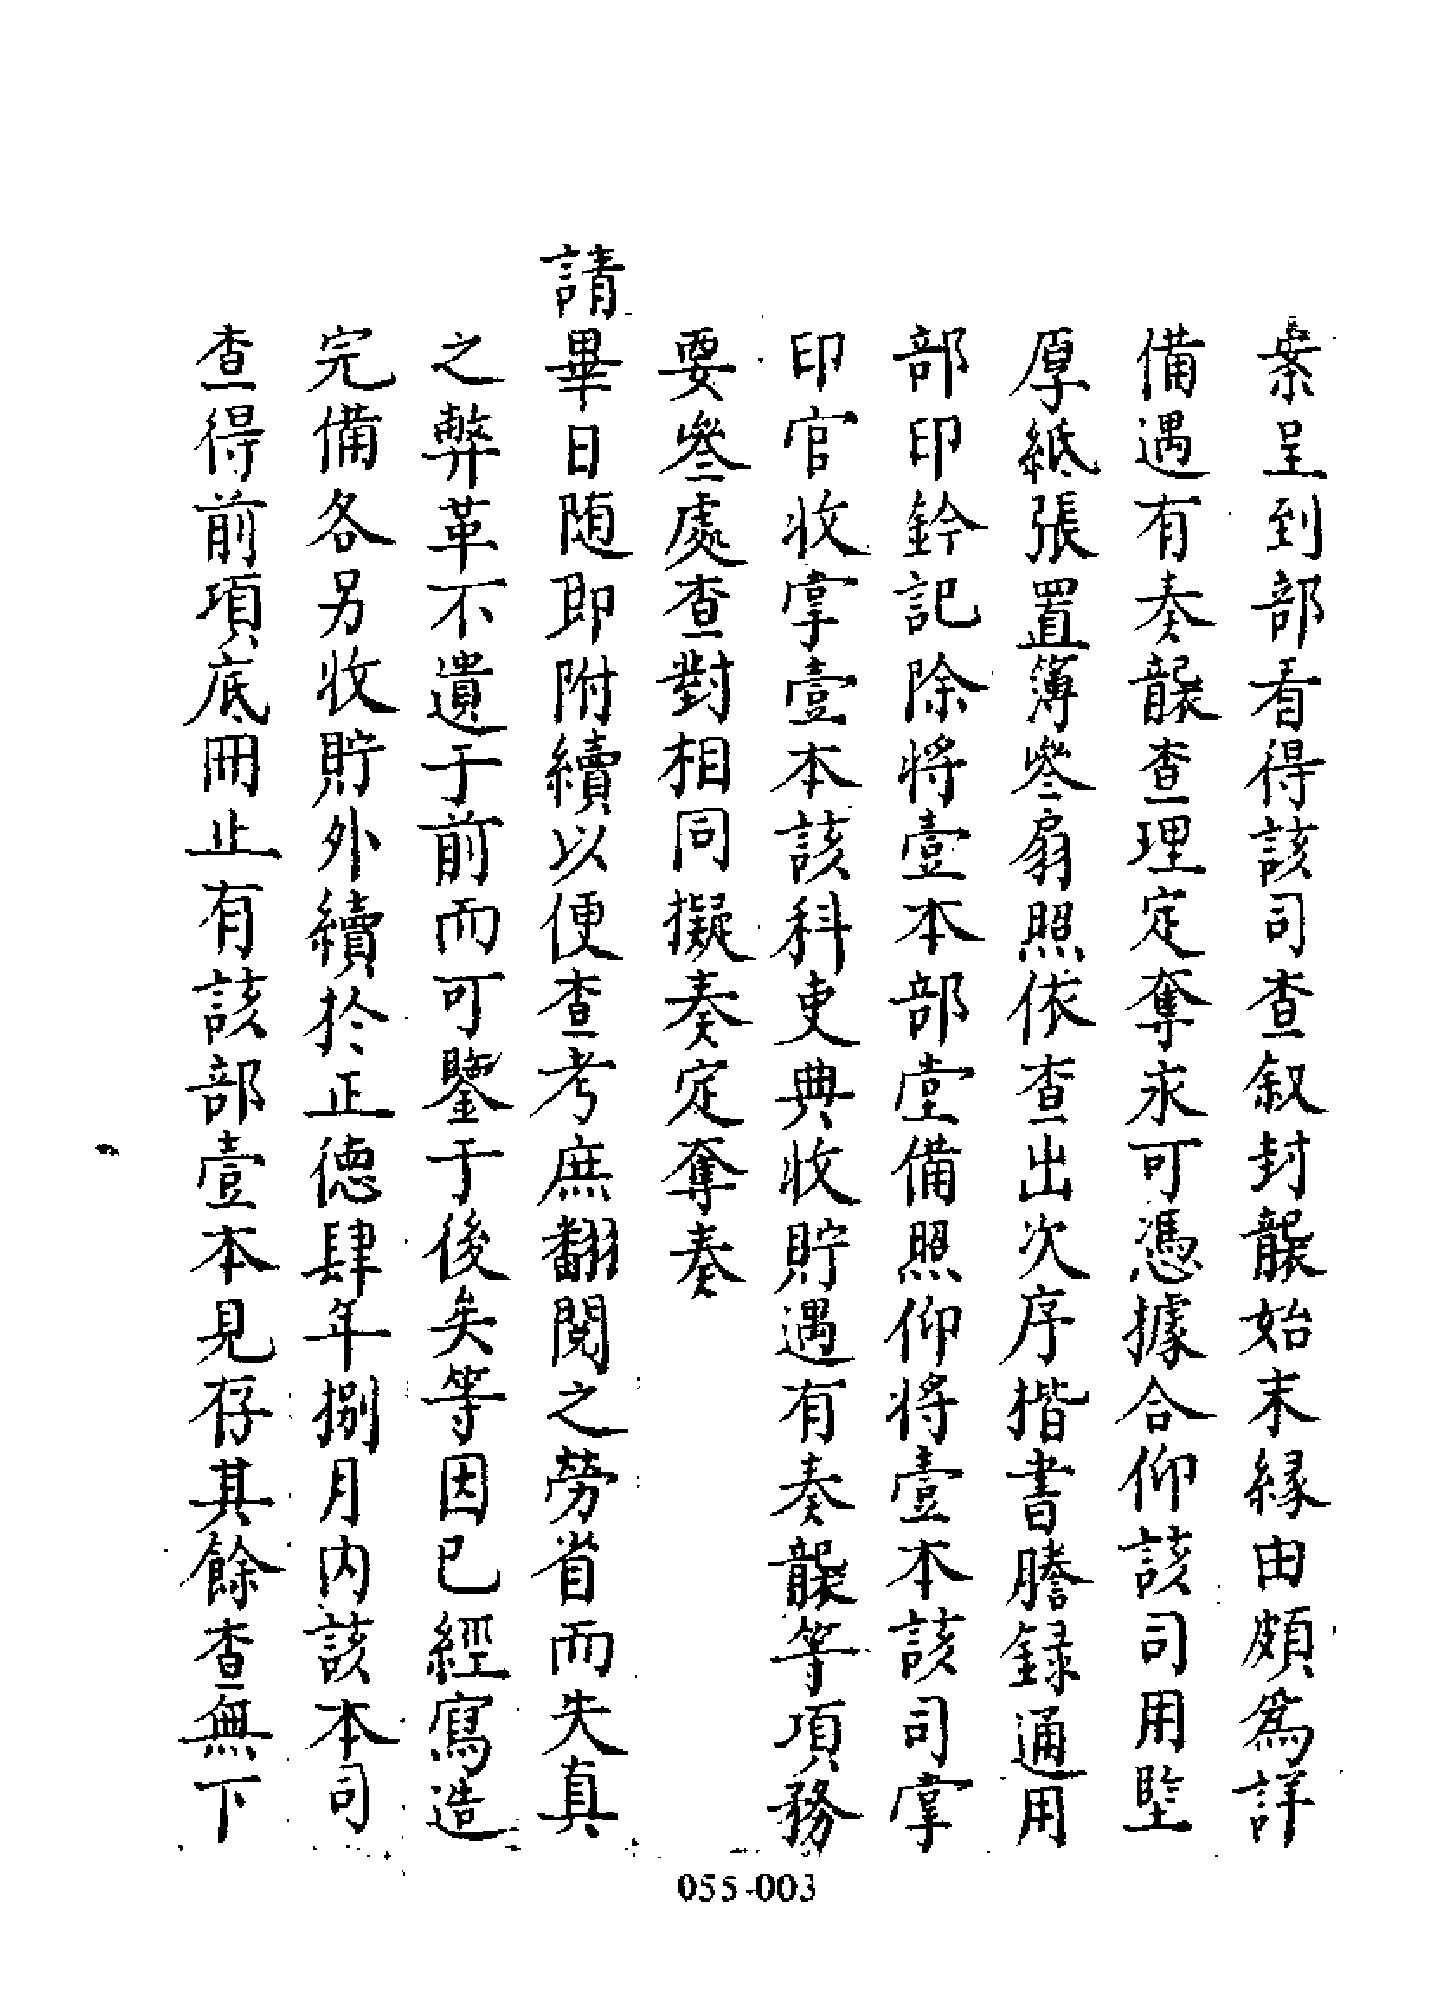 案呈到部看得該司查叙封襲始末縁由頗爲詳
備遇有奏襲查理定奪永可憑據合仰該司用堅
厚紙張置簿叄扇照依查出次序揩書謄録通用
部印鈐記除将壹本部堂備照仰将壹本該司掌
印官收掌壹本該科吏典收貯遇有奏襲等項務
要叄處查對相同擬奏定奪奏
請畢日随即附續以便查考庶翻閱之勞省而失真
之弊革不遺于前而可鑒于後矣等因已經寫造
完備各另收貯外續於正德肆年捌月内該本司
查得前項底冊止有該部壹本見存其餘查無下
055-003